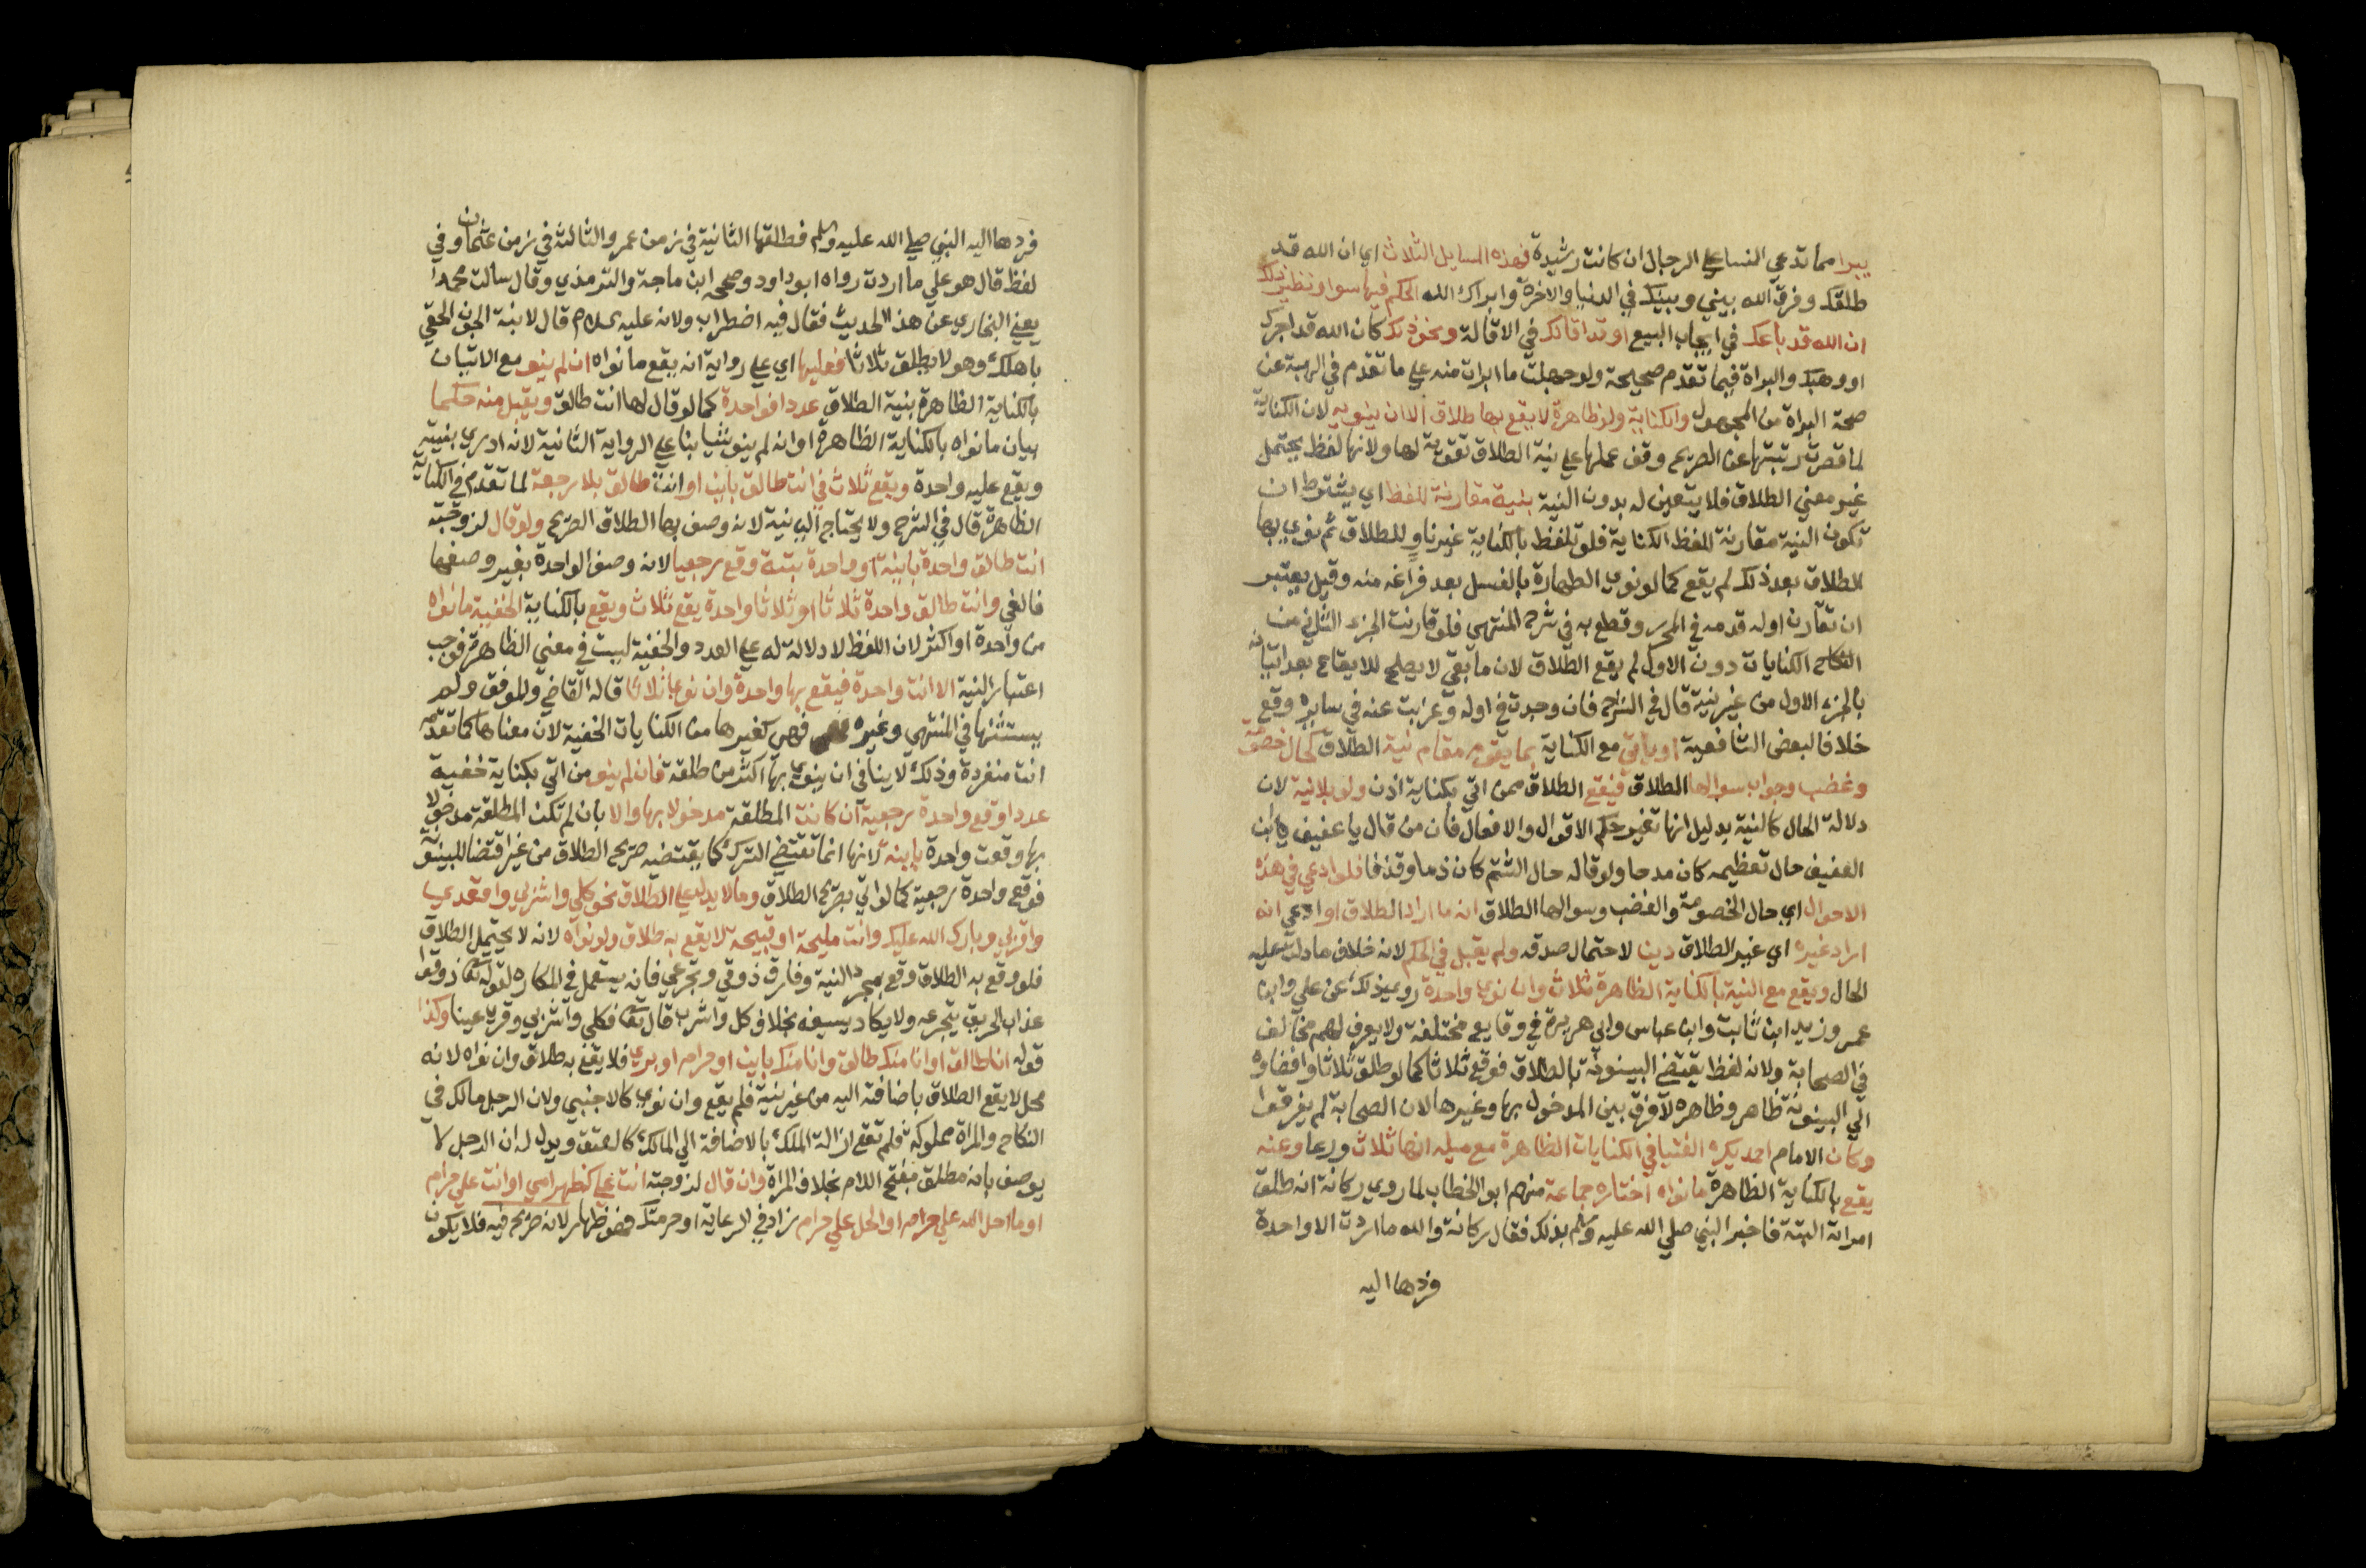 يبرا مما تدعي النسا علي الرجال ان كانت رشيدة فهذه المسايل الثلاث اي ان الله قد
طلقك وفرق الله بيني وبينك في الدنيا والاخرة وابراك الله الحكم فيها سوا ونظير ذلك
ان الله قد باعك في ايجاب البيع او قد اقالك في الاقالة ونحو ذلك كان الله قد اجرك
او وهبك والبراة فيما تقدم صحيحة ولو جهلت ما ابرات منه علي ما تقدم في الهبة عن
صحة البراة من المجهول والكناية ولو ظاهرة لا يقع بها طلاق الا ان ينويه لان الكناية
لما قصرت رتبتها عن الصريح وقف عملها علي نية الطلاق تقوية لها ولانها لفظ يحتمل
غير معني الطلاق فلا يتعين له بدون النية بنية مقارنة للفظ اي يشترط ان
تكون النية مقارنة للفظ الكناية فلو تلفظ بالكناية غير ناو للطلاق ثم نوي بها
الطلاق بعد ذلك لم يقع كما لو نوي الطهارة بالغسل بعد فراغه منه وقيل يعتبر
ان تقارن اوله قدمه في المحرر وقطع به في شرح المنتهي فلو قارنت الجزء الثاني من
الكنايات دون الاول لم يقع الطلاق لان ما بقي لا يصلح للايقاع بعد اتيانه
بالجزء الاول من غير نية قال في الشرح فان وجدت في اوله وعزبت عنه في سايره وقع
خلافا لبعض الشافعية او ياتي مع الكناية بما يقوم مقام نية الطلاق كحال خصومة
وغضب وجواب سوالها الطلاق فيقع الطلاق ممن اتي بكناية اذن ولو بلا نية لان
دلالة الحال كالنية بدليل انها تغير حكم الاقوال والافعال فان من قال يا عفيف يا ابن
العفيف حال تعظيمه كان مدحا ولو قاله حال الشتم كان ذما وقذفا فلو ادعي في هذه
الاحوال اي حال الخصومة والغضب وسوالها الطلاق انه ما اراد الطلاق او ادعي انه
اراد غيره اي غير الطلاق دين لاحتمال صدقه ولم يقبل في الحكم لانه خلاف ما دلت عليه
الحال ويقع مع النية بالكناية الظاهرة ثلاث وان نوي واحدة روي ذلك عن علي وابن
عمر وزيد ابن ثابت وابن عباس وابي هريرة في وقايع مختلفة ولا يعرف لهم مخالف
في الصحابة ولانه لفظ يقتضي البينونة بالطلاق فوقع ثلاثا كما لو طلق ثلاثا وافضاوه
الي البينونة ظاهر وظاهره لا فرق بين المدخول بها وغيرها لان الصحابة لم يفرقوا
وكان الامام احمد يكره الفتيا في الكنايات الظاهرة مع ميله انها ثلاث ورعا وعنه
يقع بالكناية الظاهرة ما نواه اختاره جماعة منهم ابو الخطاب لما روي ركانة انه طلق
امراته البتة فاخبر النبي صلي الله عليه وسلم بذلك فقال ركانة والله ما اردت الا واحدة
فردها اليه
فردها اليه النبي صلي الله عليه وسلم فطلقها الثانية في زمن عمر والثالثة في زمن عثمان وفي
لفظ قال هو علي ما اردت رواه ابو داود وصححه ابن ماجة والترمذي وقال سالت محمدا
يعني البخاري عن هذا الحديث فقال فيه اضطراب ولانه عليه السلام قال لابنة الجون الحقي
باهلك وهو لا يطلق ثلاثا فعليها اي علي رواية انه يقع ما نواه ان لم ينو مع الاتيان
بالكناية الظاهرة بنية الطلاق عددا فواحدة كما لو قال لها انت طالق ويقبل منه حكما
بيان ما نواه بالكناية الظاهرة او انه لم ينو شيا بنا علي الرواية الثانية لانه ادري بنيته
ويقع عليه واحدة ويقع ثلاث في انت طالق باين او انت طالق بلا رجعة لما تقدم في الكناية
الظاهرة قال في الشرح ولا يحتاج الي نية لانه وصف بها الطلاق الصريح ولو قال لزوجته
انت طالق واحدة باينة او واحدة بتة وقع رجعيا لانه وصف الواحدة بغير وصفها
فالغي وانت طالق واحدة ثلاثا او ثلاثا واحدة يقع ثلاث ويقع بالكناية الخفية ما نواه
من واحدة او اكثر لان اللفظ لا دلالة له علي العدد والخفية ليست في معني الظاهرة فوجب
اعتبار النية الا انت واحدة فيقع بها واحدة وان نوي ثلاثا قاله القاضي والموفق ولم
يستثنها في المنتهي وغيره فهي كغيرها من الكنايات الخفية لان معناها كما تقدم
انت منفردة وذلك لا ينافي ان ينوي بها اكثر من طلقة فان لم ينو من اتي بكناية خفية
عددا وقع واحدة رجعية ان كانت المطلقة مدخولا بها والا بان لم تكن المطلقة مدخولا
بها وقعت واحدة باينة لانها انما تقتضي الترك كما يقتضيه صريح الطلاق من غير اقتضا للبينونة
فوقع واحدة رجعية كما لو اتي بصريح الطلاق وما لا يدل علي الطلاق نحو كلي واشربي واقعدي
واقربي وبارك الله عليك وانت مليحة او قبيحة لا يقع به طلاق ولو نواه لانه لا يحتمل الطلاق
فلو وقع به الطلاق وقع بمجرد النية وفارق ذوقي وتجرعي فانه يستعمل في المكاره لقوله تعالي ذوقوا
عذاب الحريق يتجرعه ولا يكاد يسيغه بخلاف كلي واشربي قال تعالي فكلي واشربي وقري عينا وكذا
قوله انا طالق او انا منك طالق وانا منك باين او حرام او بري فلا يقع به طلاق وان نواه لانه
محل لا يقع الطلاق باضافته اليه من غير نية فلم يقع وان نوي كالاجنبي ولان الرجل مالك في
النكاح والمراة مملوكة فلم تقع ازالة الملك بالاضافة الي المالك كالعتق ويدل له ان الرجل لا
يوصف بانه مطلق بفتح اللام بخلاف المراة وان قال لزوجته انت علي كظهر امي او انت علي حرام
او ما احل الله علي حرام او الحل علي حرام زاد في الرعاية او حرمتك فهو ظهار لانه صريح فيه فلا يكون